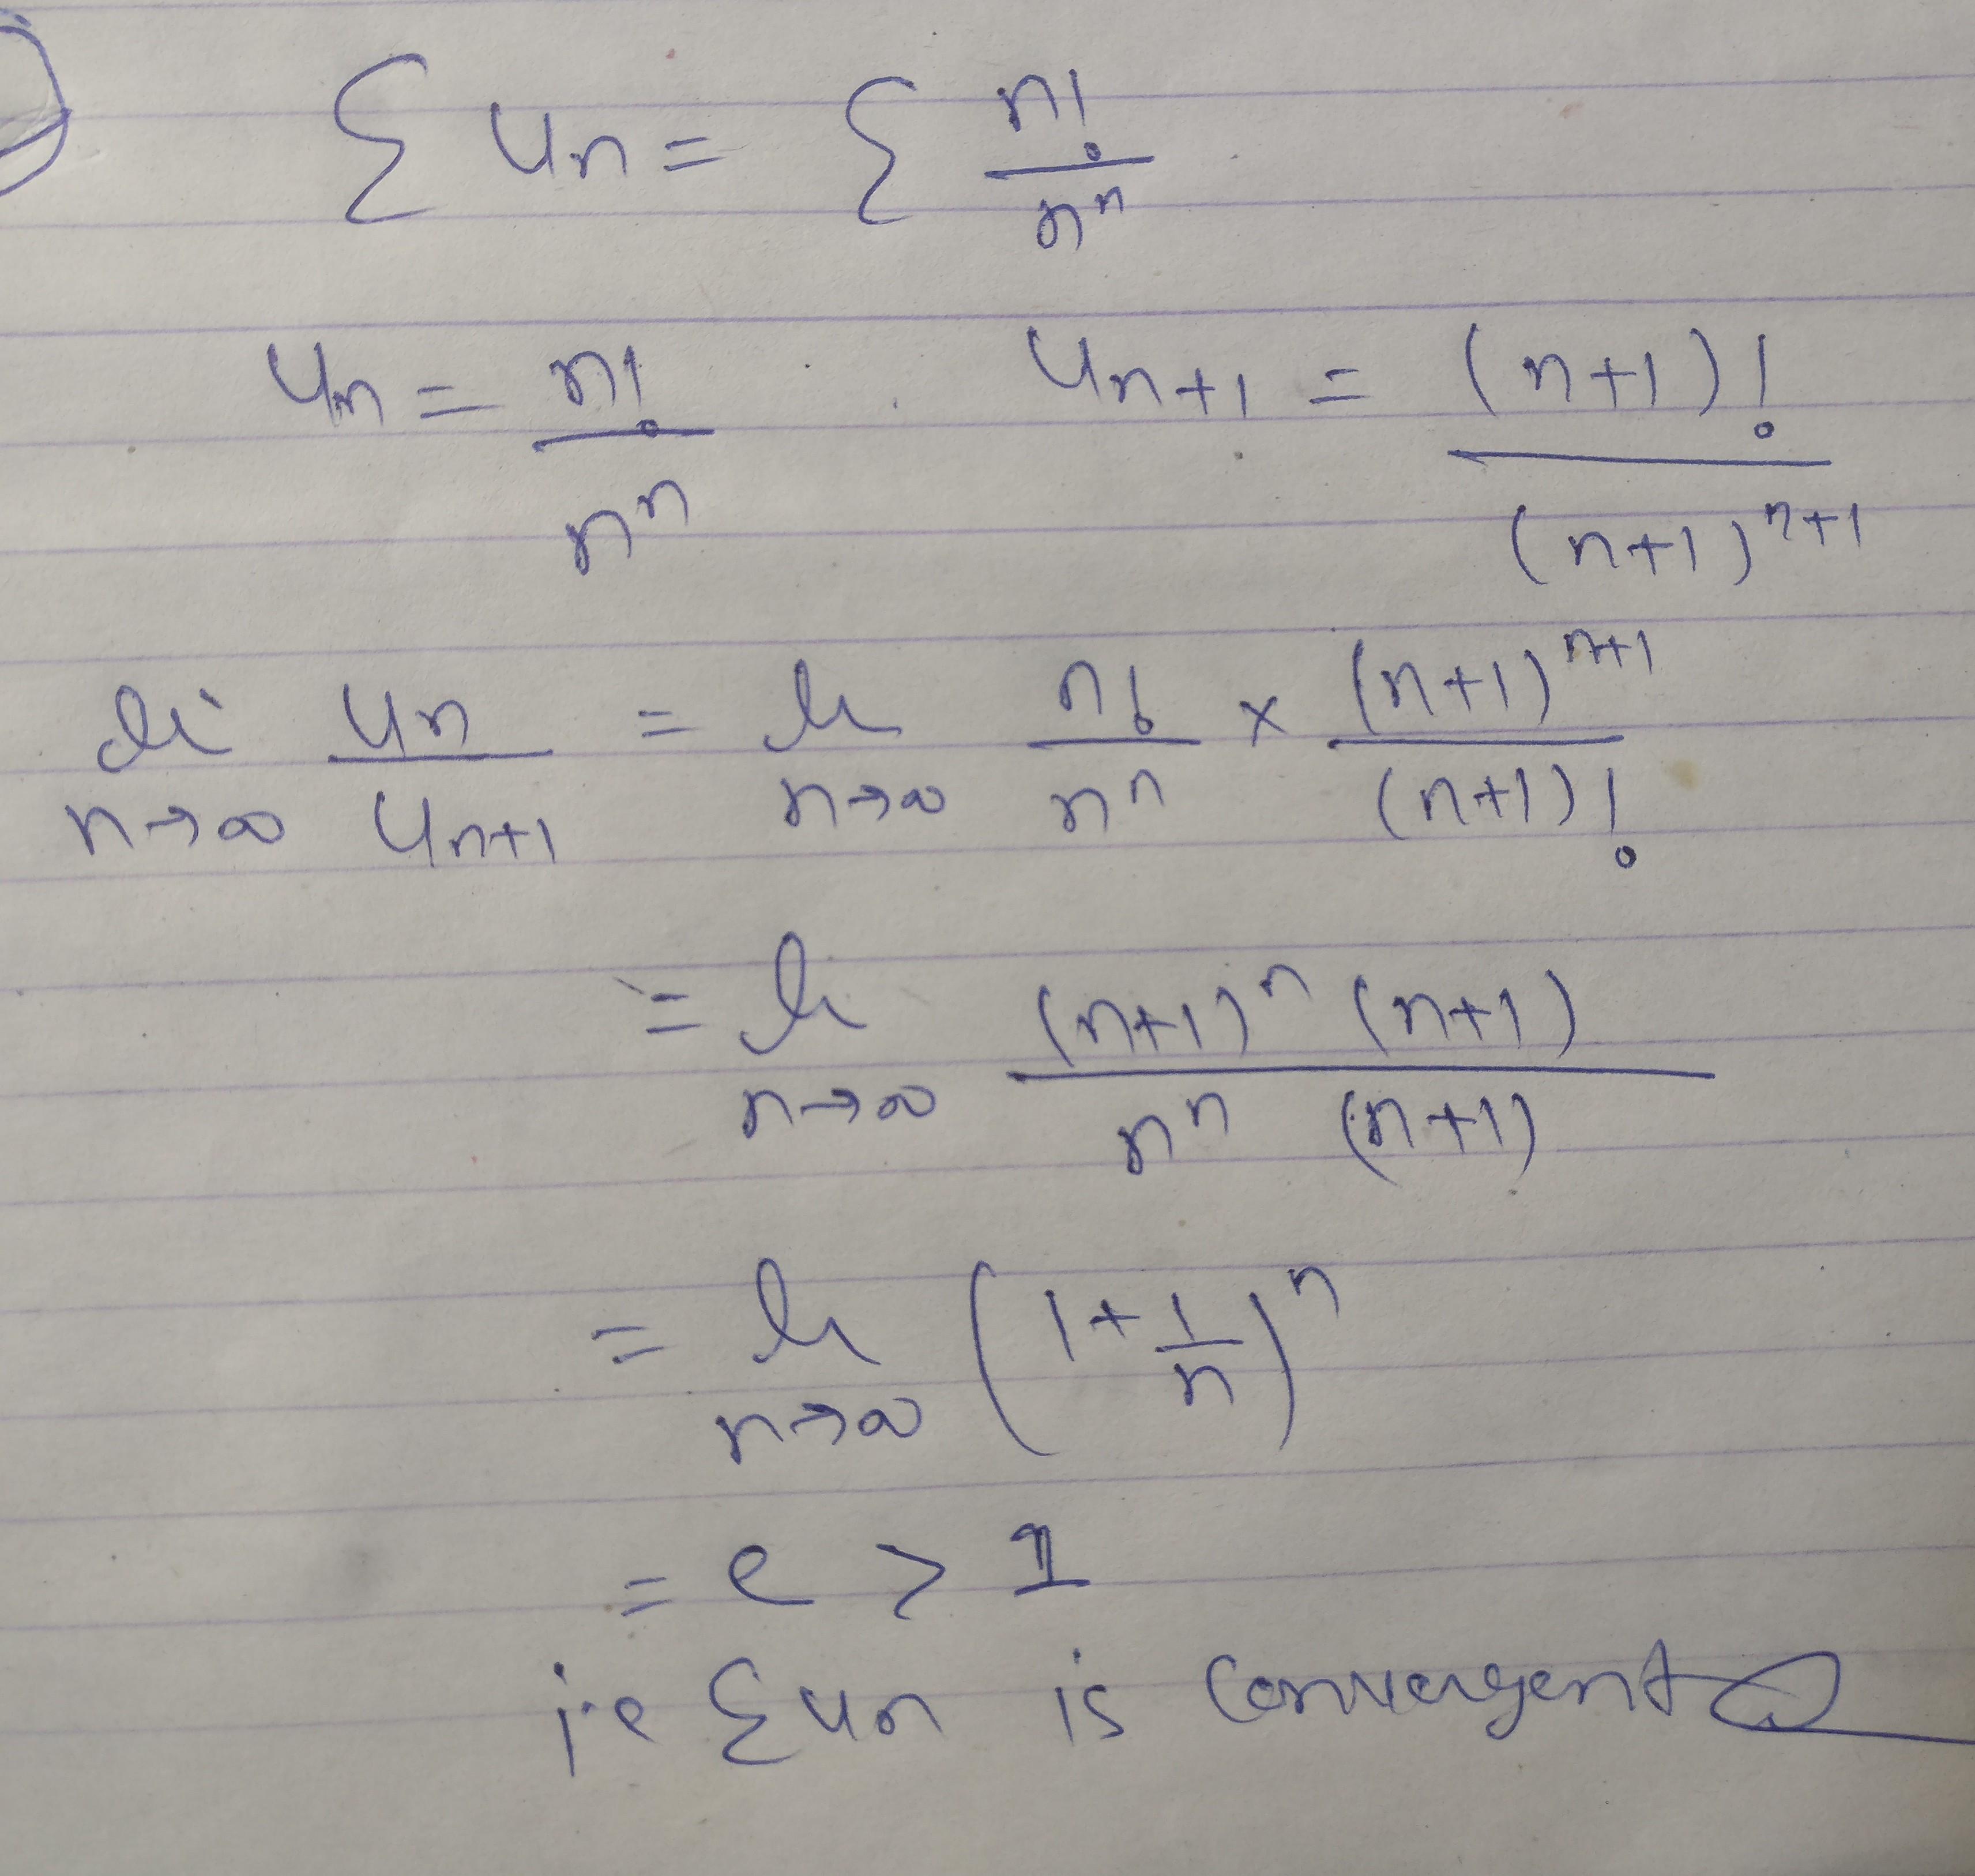 Σ un = Σ n!/n^n
un = n!/n^n    un+1 = (n+1)!/(n+1)^n+1
li n→∞ un/un+1 = li n→∞ n!/n^n × (n+1)^n+1/(n+1)!
= li n→∞ (n+1)^n (n+1)/n^n (n+1)
= li n→∞ (1+1/n)^n
= e > 1
i.e Σun is convergent